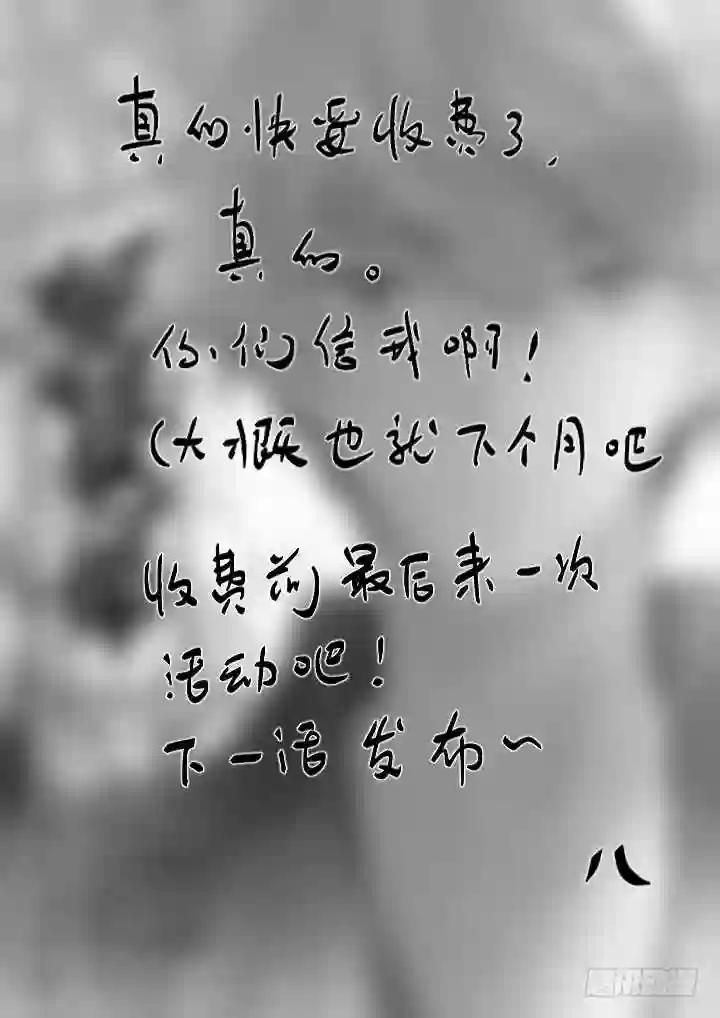 真的快要收费了，
真的。
你们信我啊！
（大概也就下个月吧
收费前最后来一次
活动吧！
下一话发布～
八